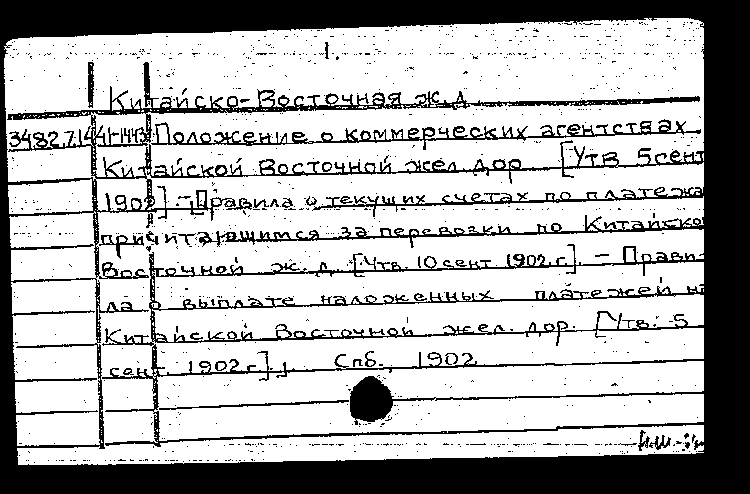 1.
Китайско-Восточная ж.д.
Положение о коммерческих агентствах
Китайской Восточной жел. дор. [Утв. 5 сент
1902]. - Правила о текущих счетах по платежа
причитающимся за перевозки по Китайско
Восточной ж. д. [Утв. 10 сент. 1902 г.]. - Прави-
ла о выплате наложенных платежей н
Китайской Восточной жел. дор. [Утв. 5
сент. 1902 г.]. Спб., 1902